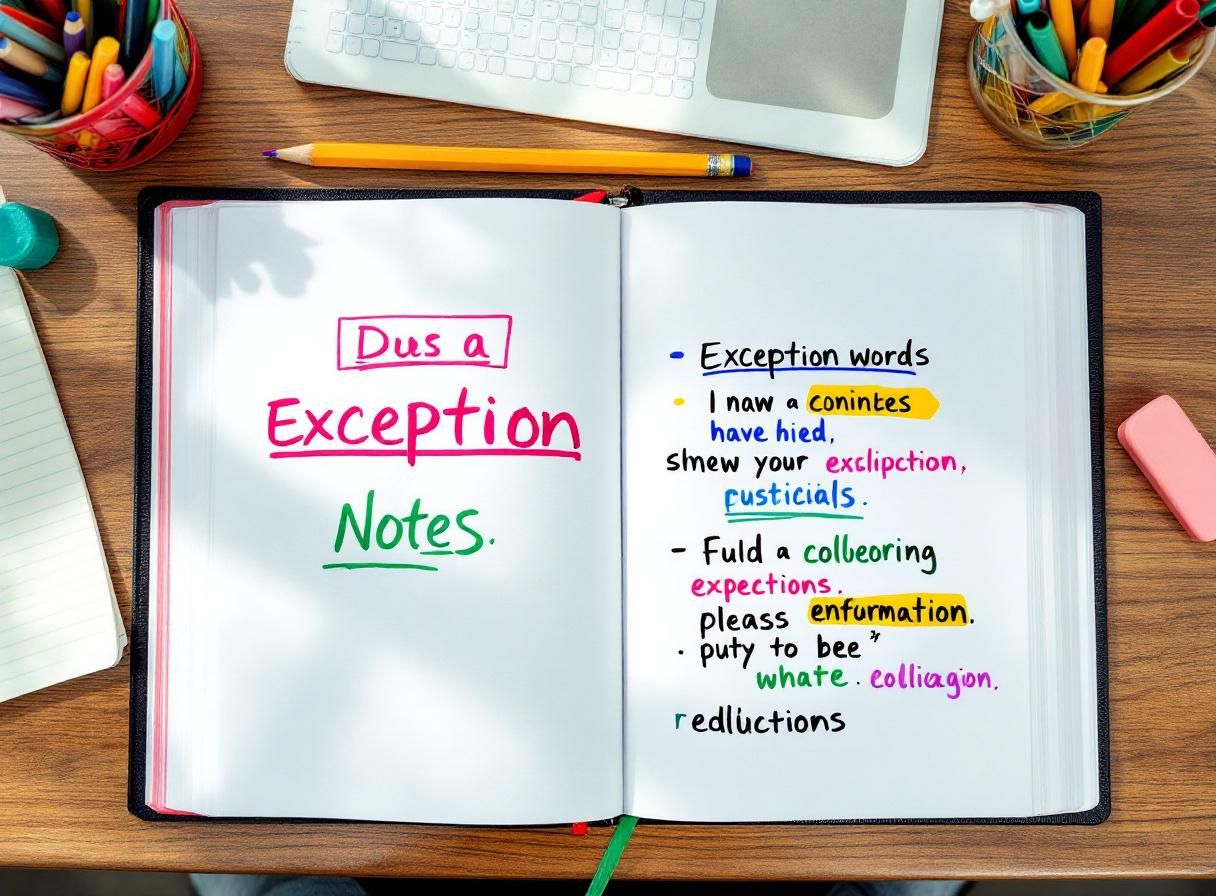 Dus a
Exception
Notes.
- Exception words
• I naw a conintes
have hied,
shew your exclipction,
rusticials.
- Fuld a collbeoring
expections.
pleass enfurmation.
· puty to bee "
whate. colliagion.
redluctions